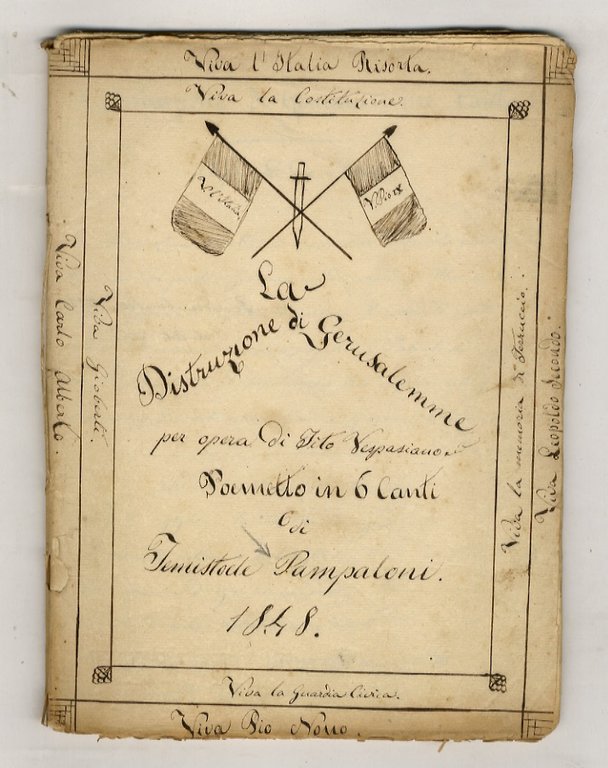 Viva l'Italia Risorta.
Viva la Costituzione.
V. l'Italia
V. Pio IX
La
Distruzione di Gerusalemme
per opera di Tito Vespasiano
Poemetto in 6 Canti
di
Temistocle Pampaloni.
1848.
Viva Carlo Alberto.
Viva Gioberti.
Viva la memoria di Ferruccio.
Viva Leopoldo Secondo.
Viva la Guardia Civica.
Viva Pio Nono.